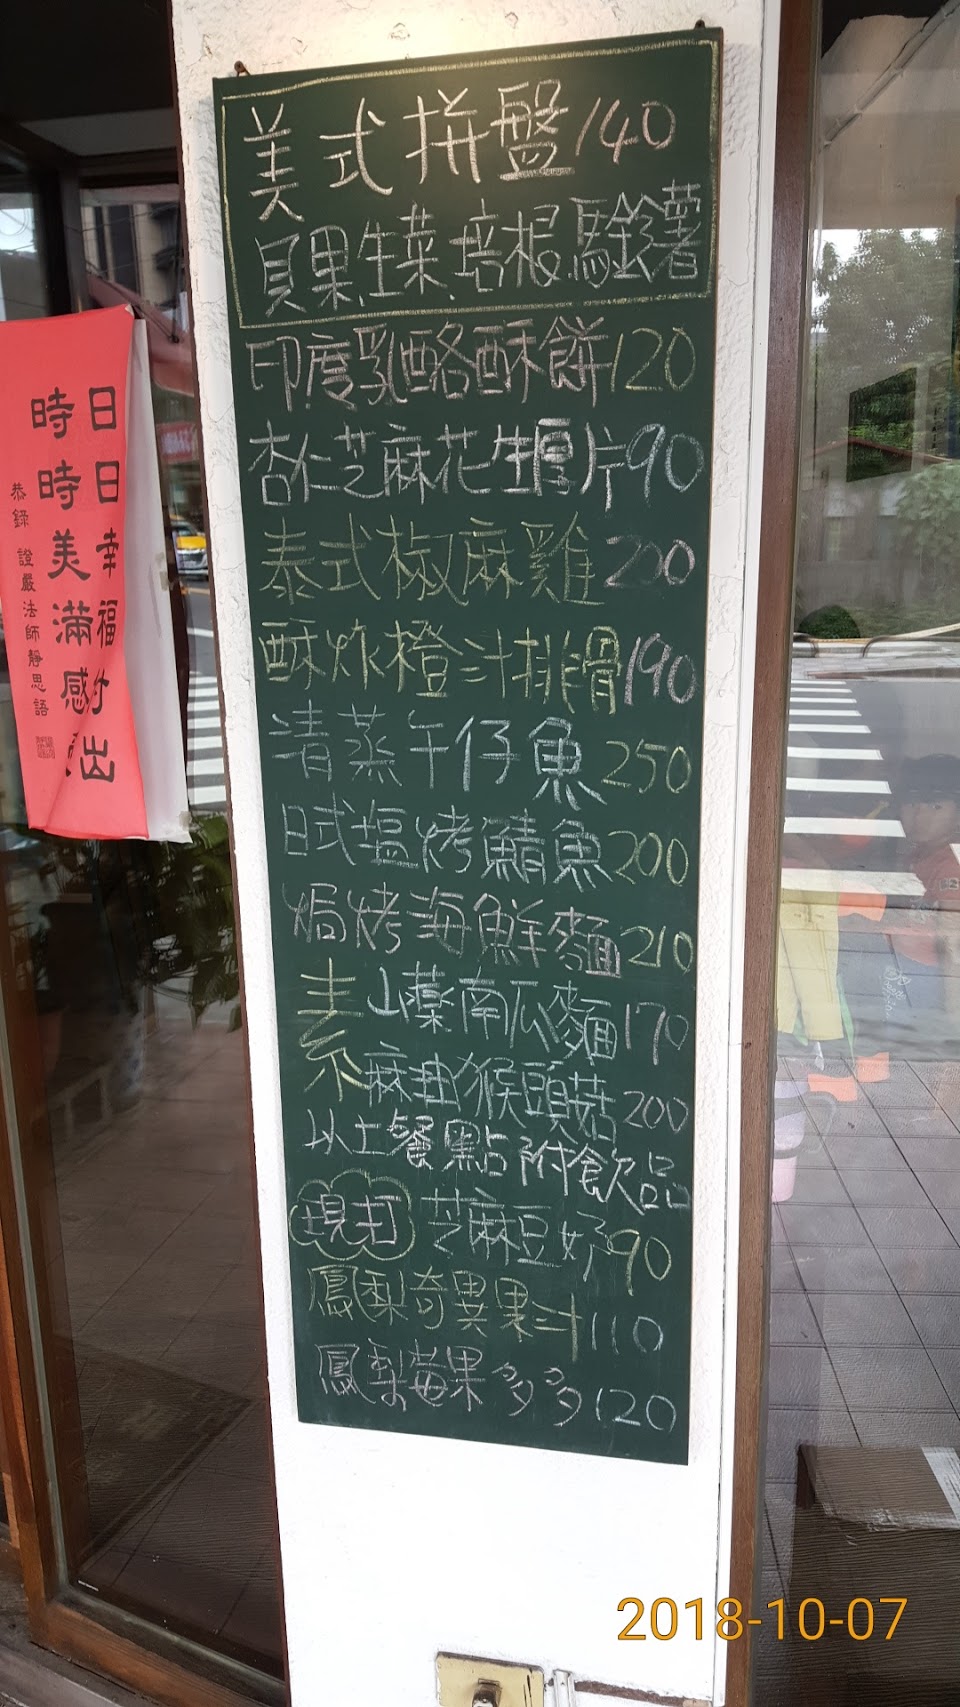 美式拼盤140
貝果.生菜.培根.馬鈴薯
印度乳酪酥餅120
杏仁芝麻花生厚片90
泰式椒麻雞200
酥炸橙汁排骨190
清蒸午仔魚250
日式塩烤鯖魚200
焗烤海鮮麵210
素
山藥南瓜麵170
麻油猴頭菇200
以上餐點附飲品
現打 芝麻豆奶90
鳳梨奇異果汁110
鳳梨莓果多多120
日日幸福付出
時時美滿感
恭錄 證嚴法師靜思語
2018-10-07